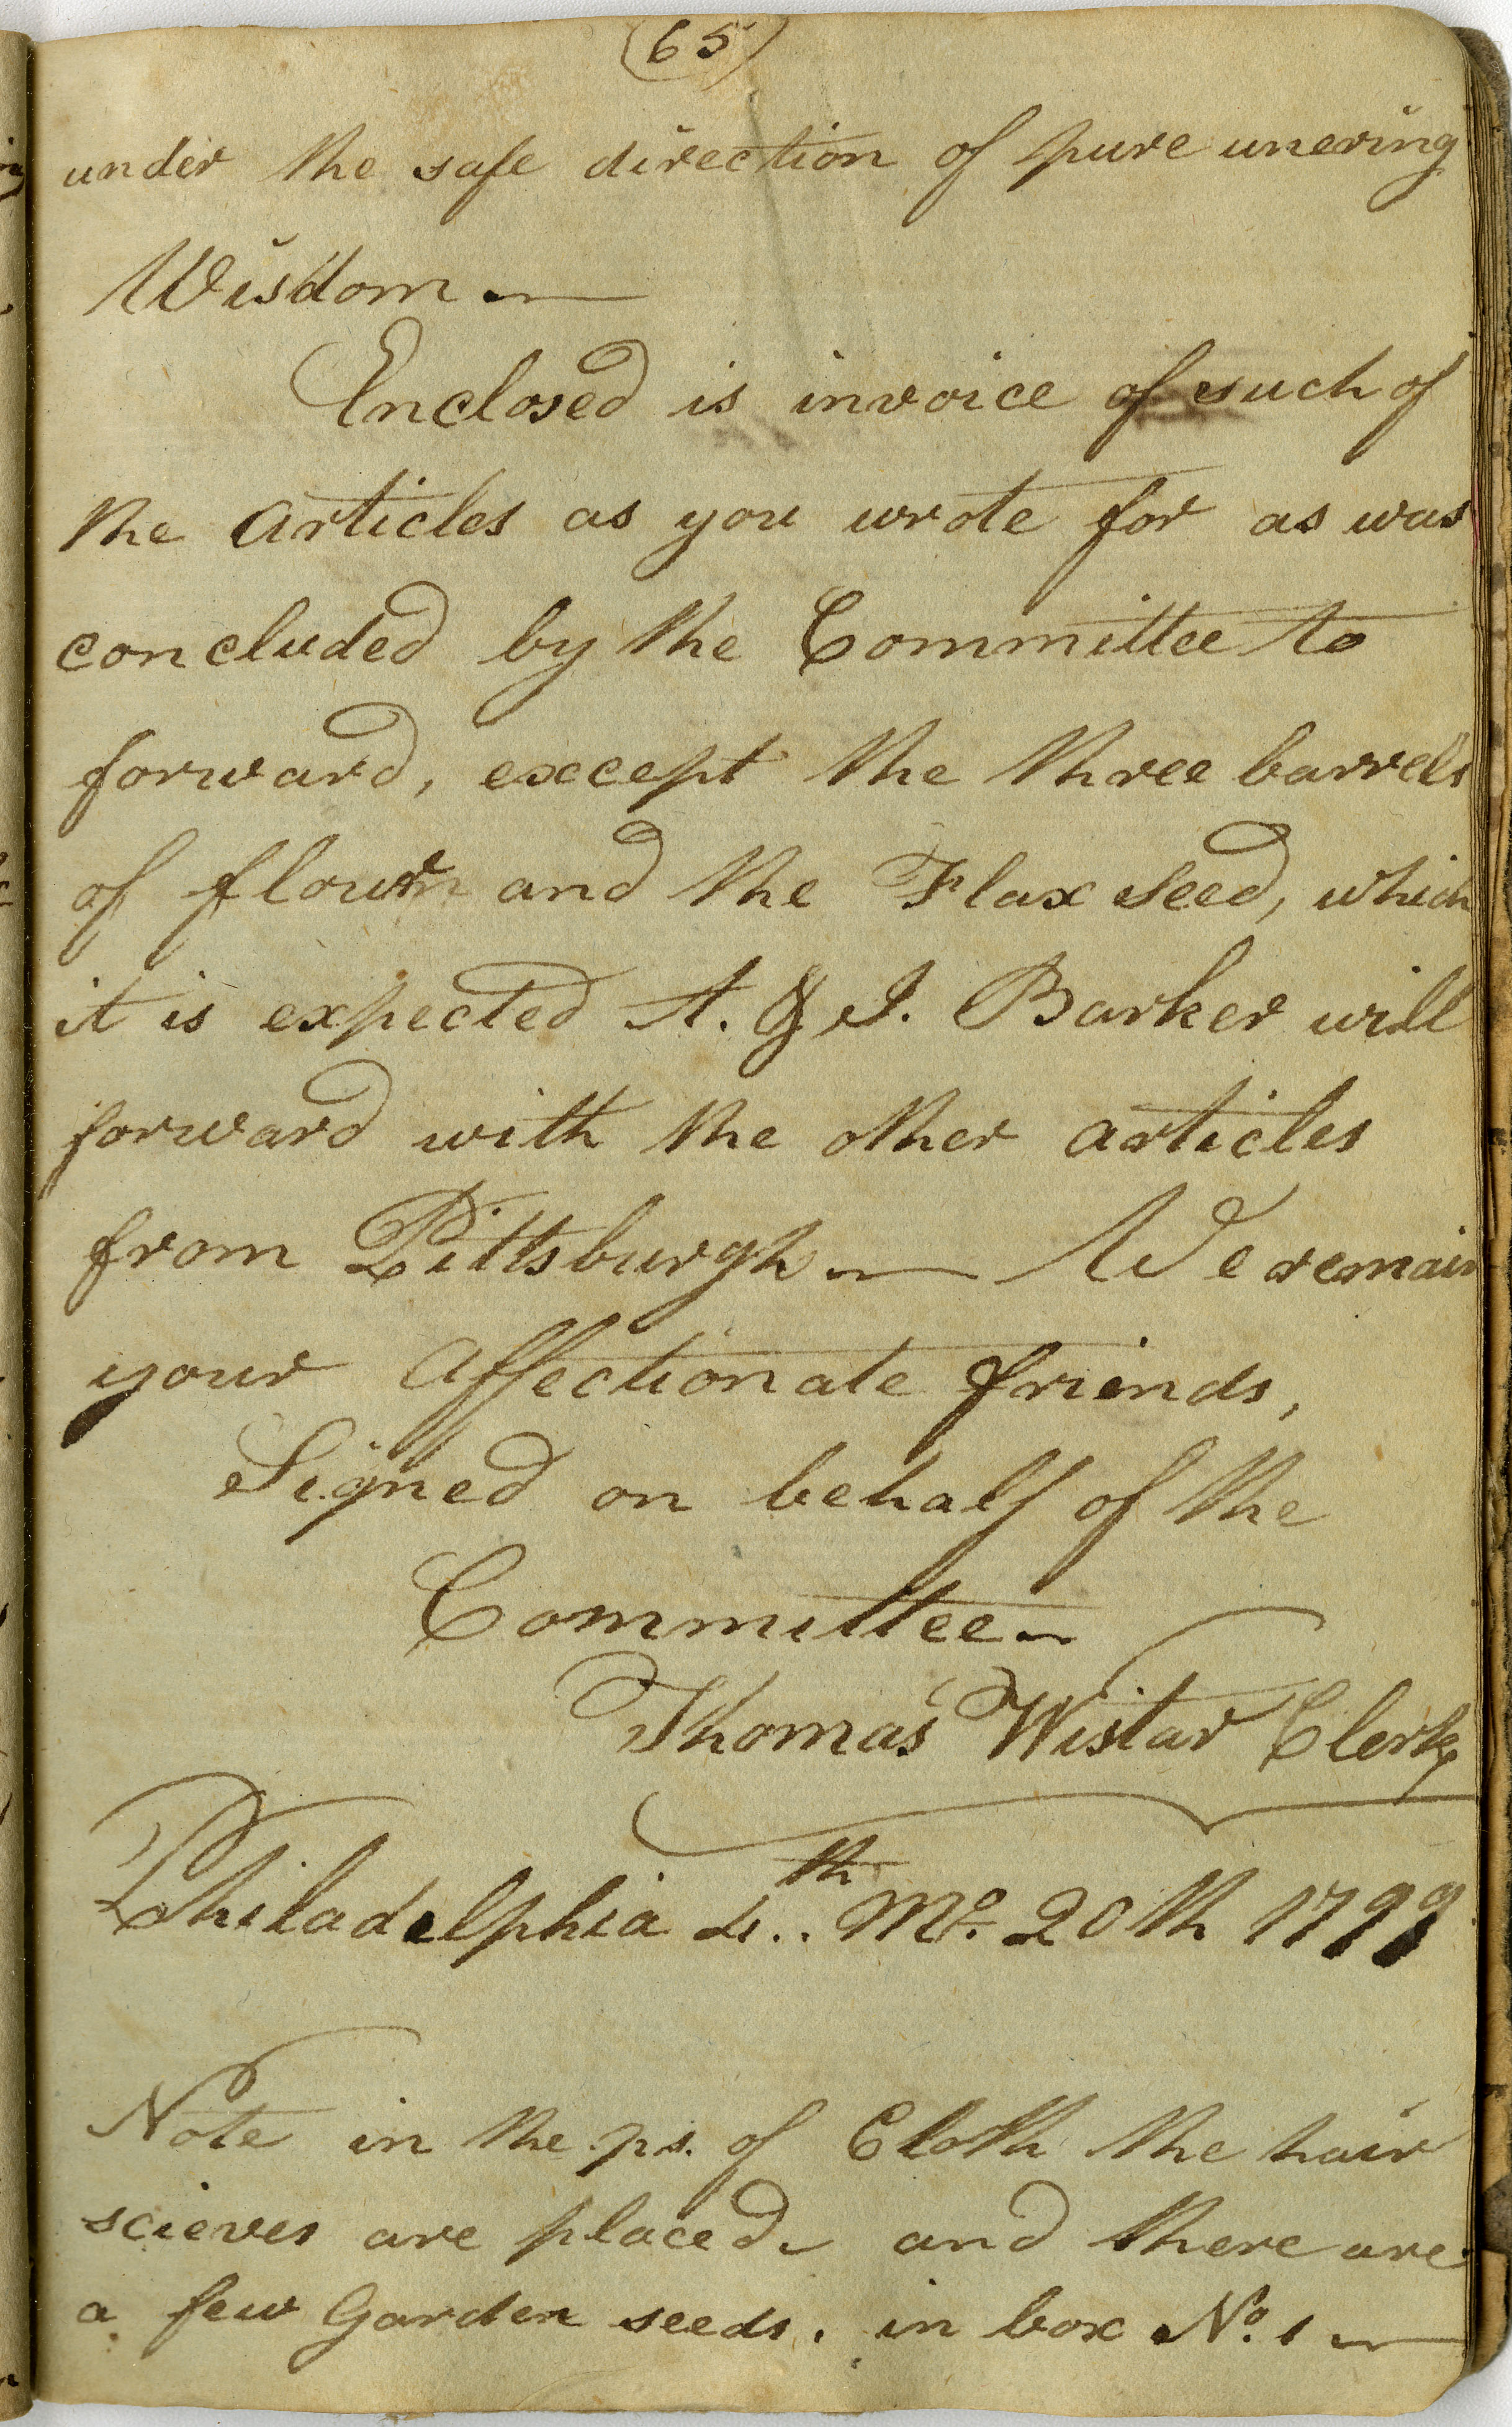 (65)
under the safe direction of pure unering
Wisdom —
Enclosed is invoice of such of
the articles as you wrote for as was
concluded by the Committee to
forward, except the three barrels
of flour and the Flax seed, which
it is expected A. & J. Barker will
forward with the other articles
from Pittsburgh — We remain
your affectionate friends,
Signed on behalf of the
Committee —
Thomas Wistar Clerk
Philadelphia 4..th Mo. 20th 1799
Note in the ps. of Cloth the hair
scieves are placed, and there are
a few Garden seeds. in box No. 1 —